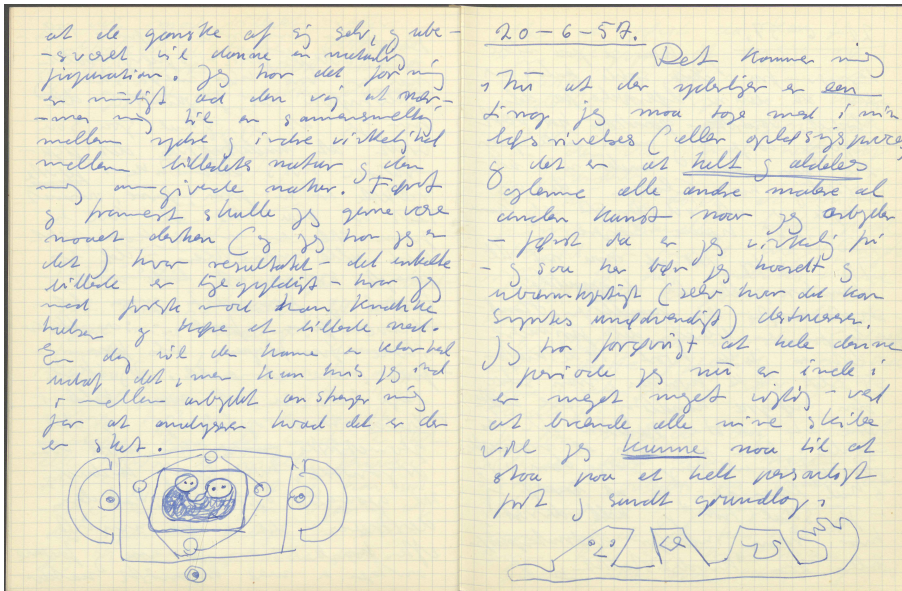 at de ganske af sig selv, g ube-
-sværet vil danne en
figuration. Jeg tror det for mig
er muligt ad den vej at nær-
-me mig til en sammensmeltning
mellem ydre g indre virkelighed
mellem billedets natur g den
mig omgivende natur. Først
g fremmest skulle jeg gerne være
naaet dertil (g jeg tror jeg er
det) hvor resultatet - det enkelte
billede er ligegyldigt - hvor jeg
med friskt mod kan knække
halsen g et billede ned.
En dag vil der komme en klarhed
ud af det, men kun hvis jeg ind
i mellem arbejdet anstrenger mig
for at analysere hvad det er der
er sket.
20-6-57.
Det kommer mig
nu at der yderligere er een
ting jeg maa tage med i min
(eller opløsningsproces)
g det er at helt g aldeles
glemme alle andre malere al
anden kunst naar jeg arbejder
- først da er jeg virkelig fri
- g saa her bør jeg haardt g
ubarmhjertigt (selv hvor det kan
synes unødvendigt) destruere.
Jeg tror forøvrigt at hele denne
periode jeg nu er inde i
er meget meget vigtig - ved
at brænde alle mine skibe
vil jeg kunne naa til at
staa paa et helt personligt
frit g sundt grundlag.